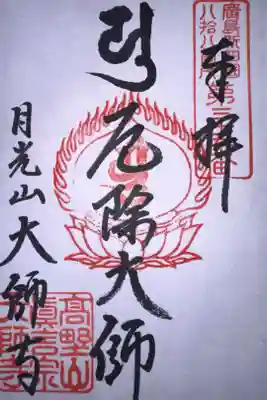 奉拝
厄除大師
月光山大師寺
廣島新四国
八拾八ヶ所
第
番
高野山
真言宗